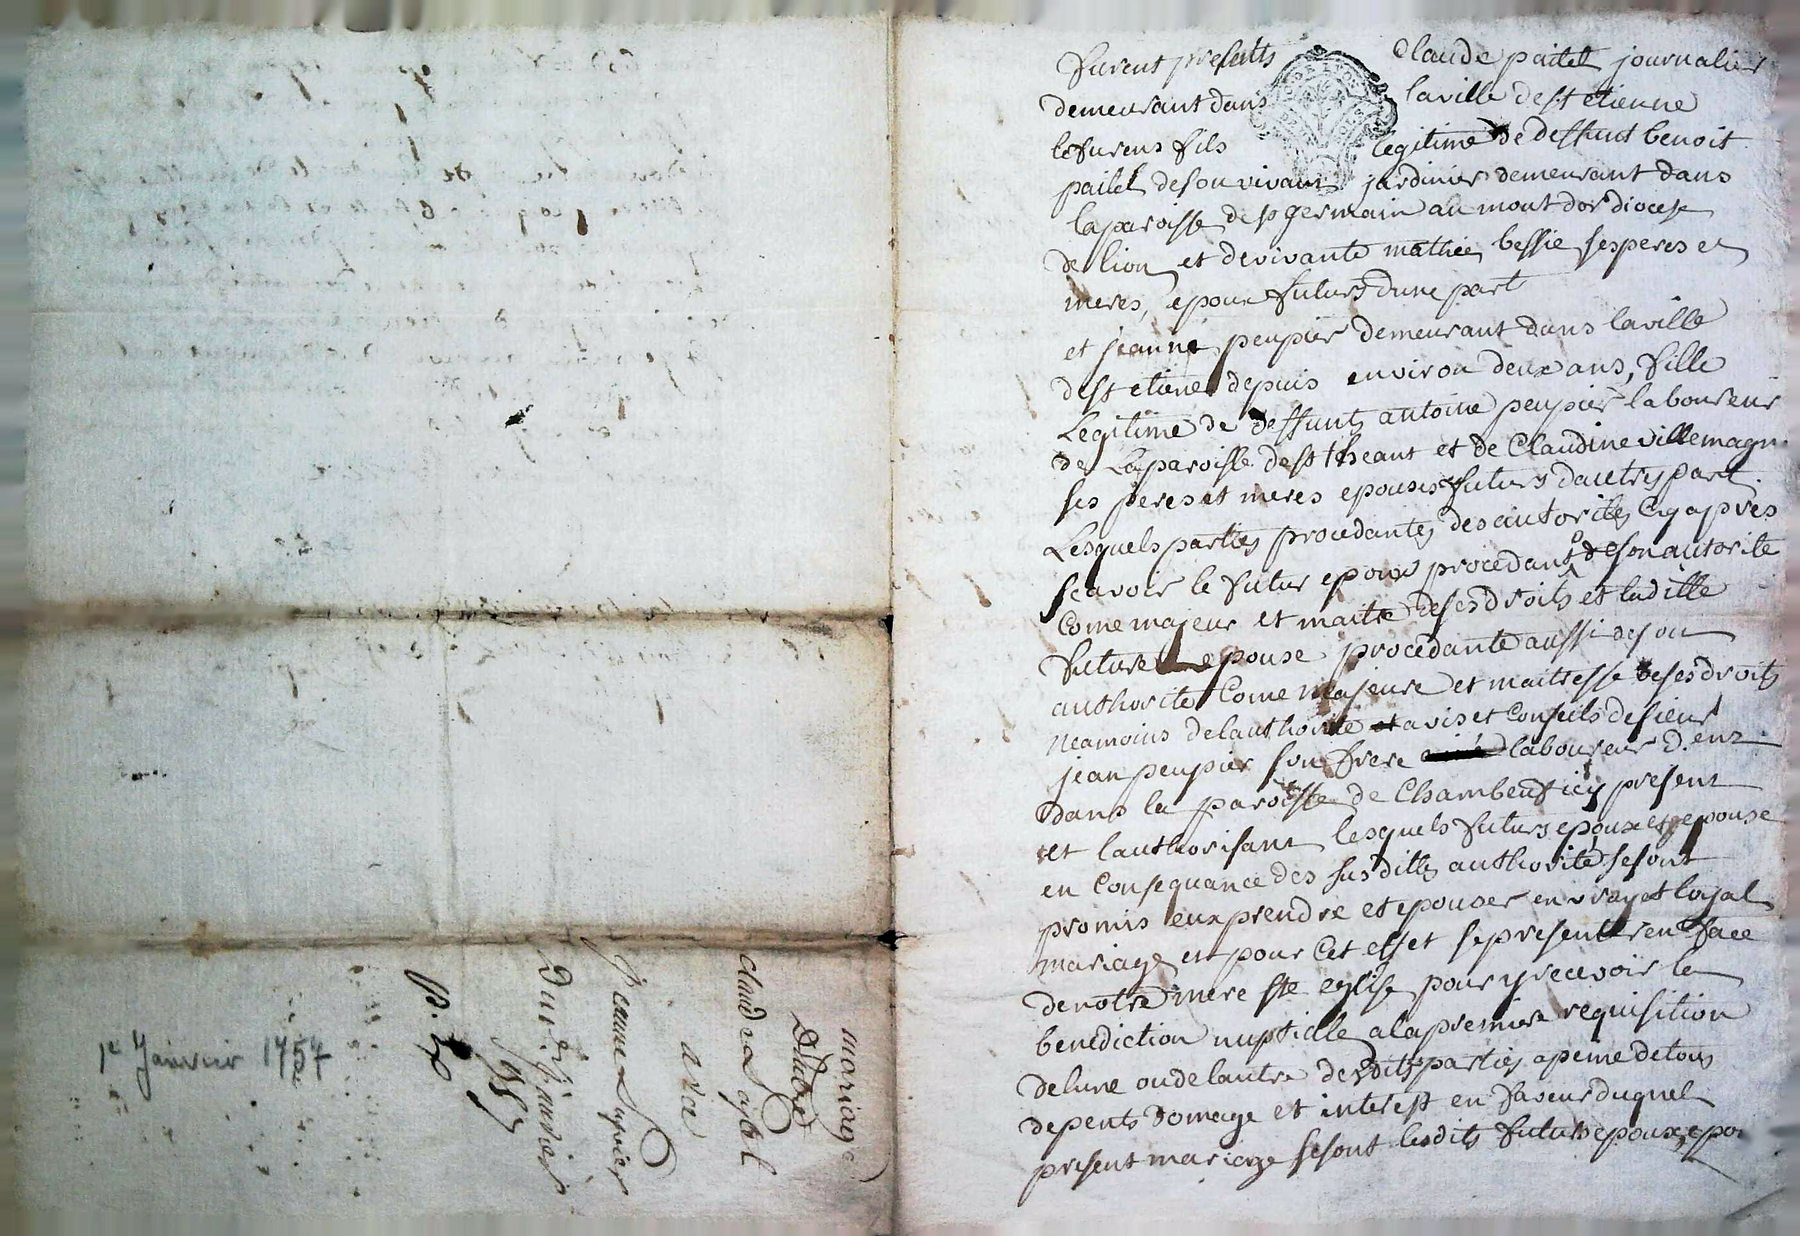 mariage
Claude pailet
avec
jeanne peupier
Du 1er janvier
1757
1e Janvier 1757
furent presents Claude pailet journalier
demeurant dans la ville de st etienne
le furens fils legitime de deffunt benoit
pailet de son vivant jardinier demeurant dans
la paroisse de st germain au mont dor diocese
de lion et de vivante mathie bessie ses peres et
meres, epoux futurs dune part
et jeanne peupier demeurant dans la ville
de st etiene depuis environ deux ans, fille
Legitime de deffunts antoine peupier laboureur
de La paroisse de st theant et de Claudine villemagn
ses peres et meres epouses futurs dautres part
Lesquels parties procedantes des autorites Cy apres
scavoir le futur epoux procedant de son autorité
Come majeur et maitre de ses droits et laditte
future epouse procedante aussi de son
authorité Come majeure et maitresse de ses droits
neamoins de lauthorité avis et Conseils de sieur
jean peupier son frere laboureur D.ent
dans la paroisse de Chambeuf icy present
et lauthorisant lesquels futurs epoux et epouse
en Consequance des susdittes authorité se sont
promis eux prendre et epouser en vray et loyal
mariage et pour Cet effet se presenter en face
de notre mere ste eglise pour y recevoir le
benediction nuptialle a la premiere requisition
de lune ou de lautre desdits parties a peine de tous
depents Domage et interest en faveur duquel
present mariage se sont lesdits futurs epoux, epo